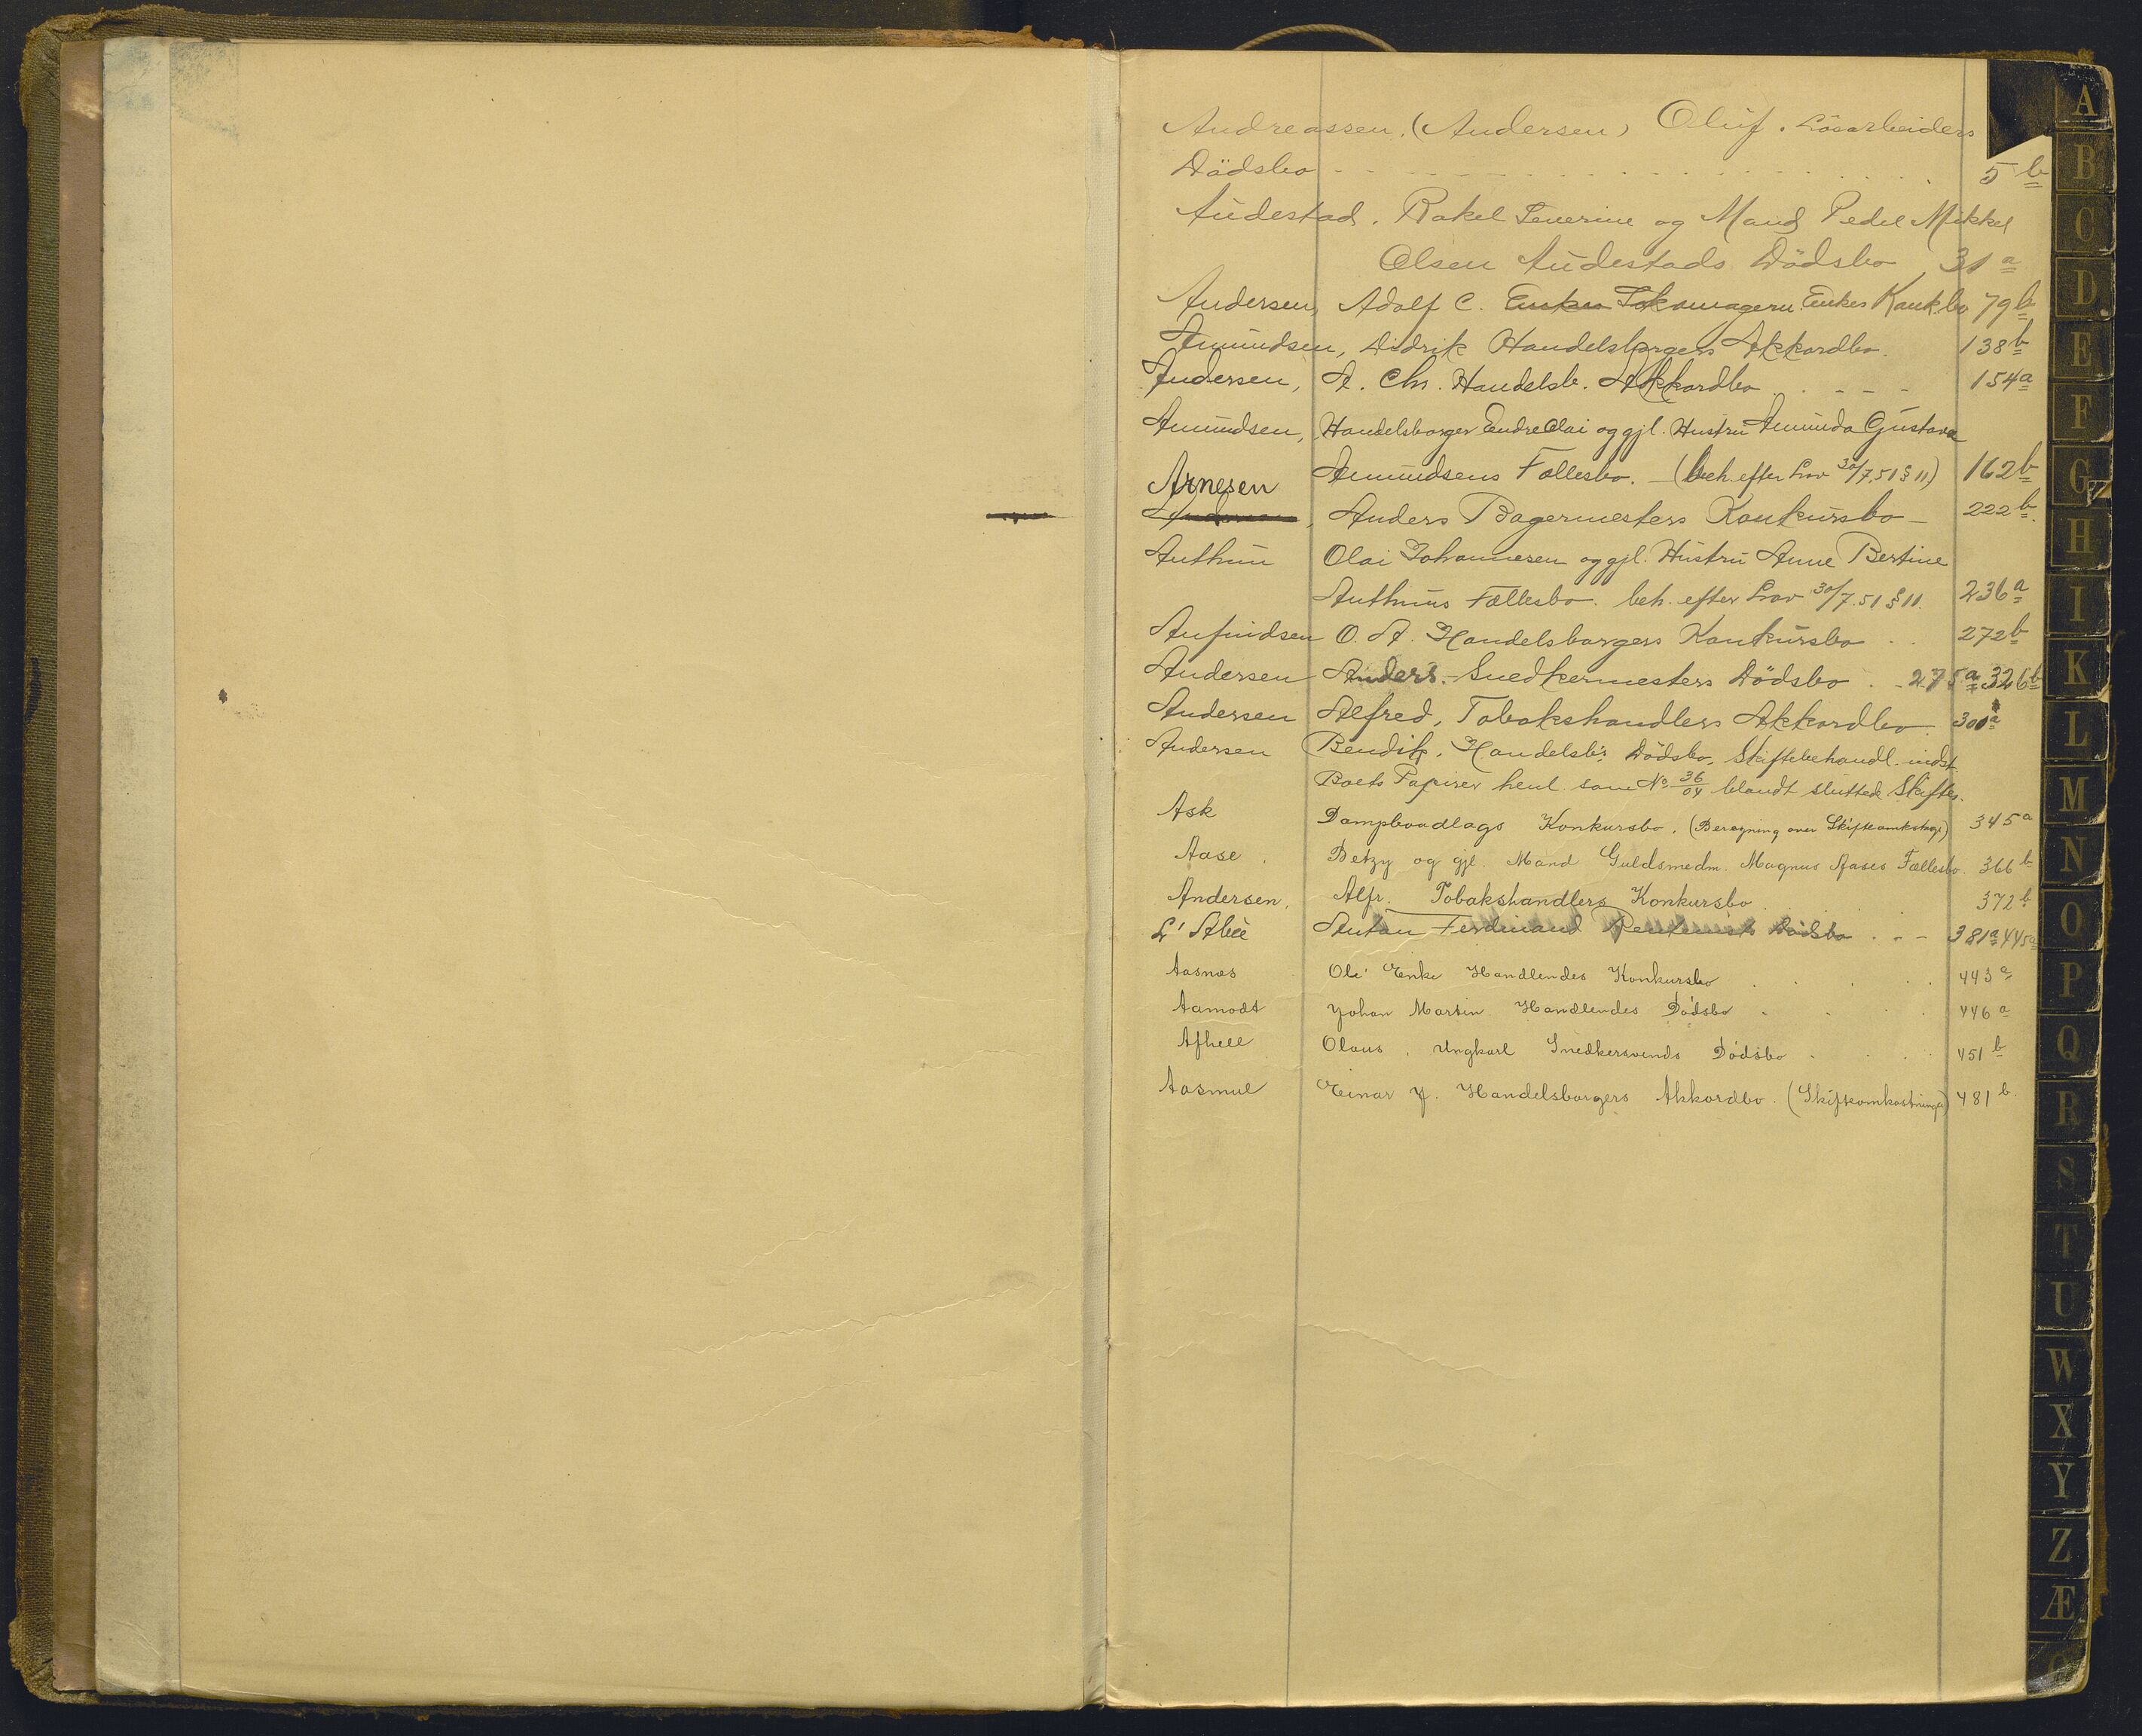 Andreassen, (Andersen) Oluf. Løsarbeiders
Dødsbo 5 b
Audestad. Rakel Severine og Mand Peder Mikkel
Olsen Audestads Dødsbo 31 a
Andersen, Adolf C. Enkes Konk.bo 79 b
Amundsen, Didrik Handelsborgers Akkordbo. 138 b
Andersen, A. Chr. Handelsb. Akkordbo 154 a
Amundsen, Handelsborger Endre Olai og gjl. Hustru Amunda Gustava
Amundsens Fællesbo. – (beh. efter Lov 30/7.51 § 11) 162 b
Arnesen
Andersen, Anders Bagermesters Konkursbo – 222 b
Anthun Olai Johannesen og gjl. Hustru Anne Bertine
Anthuns Fællesbo. beh. efter Lov 30/7.51 § 11. 236 a
Anfindsen O. A. Handelsborgers Konkursbo 272 b
Andersen Anders. Snedkermesters Dødsbo 275 a 326 b
Andersen Alfred, Tobakshandlers Akkordbo. 300 a
Andersen Bendik, Handelsb's Dødsbo, Skiftebehandl. indst.
Boets Papirer henl. som No 36/04 blandt sluttede Skifter.
Ask Dampbaadlags Konkursbo. (Beregning over Skifteomkostng.) 345 a
Aase. Betzy og gjl. Mand Guldsmedm. Magnus Aases Fællesbo. 366 b
Andersen, Alfr. Tobakshandlers Konkursbo 372 b
L'Abée Anton Ferdinand Rentenists Dødsbo 381 a 445 a
Aasnæs Ole Enke Handlendes Konkursbo 443 a
Aamodt Johan Martin Handlendes Dødsbo 446 a
Olaus, Ungkarl Snedkersvends Dødsbo 451 b
Aasmul Einar J. Handelsborgers Akkordbo. (Skifteomkostninger) 481 b.
A
B
C
D
E
F
G
H
I
K
L
M
N
O
P
Q
R
S
T
U
W
X
Y
Z
Æ